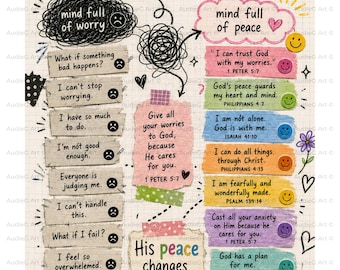 mind full
of worry
What if something
bad happens?
I can't stop
worrying.
I have so much
to do.
I'm not good
enough.
Everyone is
judging me.
I can't handle
this.
What if I fail?
I feel so
overwhelmed.
Give all
your worries
to God,
because
He cares
for you.
1 PETER 5:7
His peace
changes
mind full
of peace
I can trust God
with my worries.
1 PETER 5:7
God's peace guards
my heart and mind.
PHILIPPIANS 4:7
I am not alone.
God is with me.
ISAIAH 41:10
I can do all things
through Christ.
PHILIPPIANS 4:13
I am fearfully and
wonderfully made.
PSALM 139:14
Cast all your anxiety
on Him because he
cares for you.
1 PETER 5:7
God has a plan
for me.